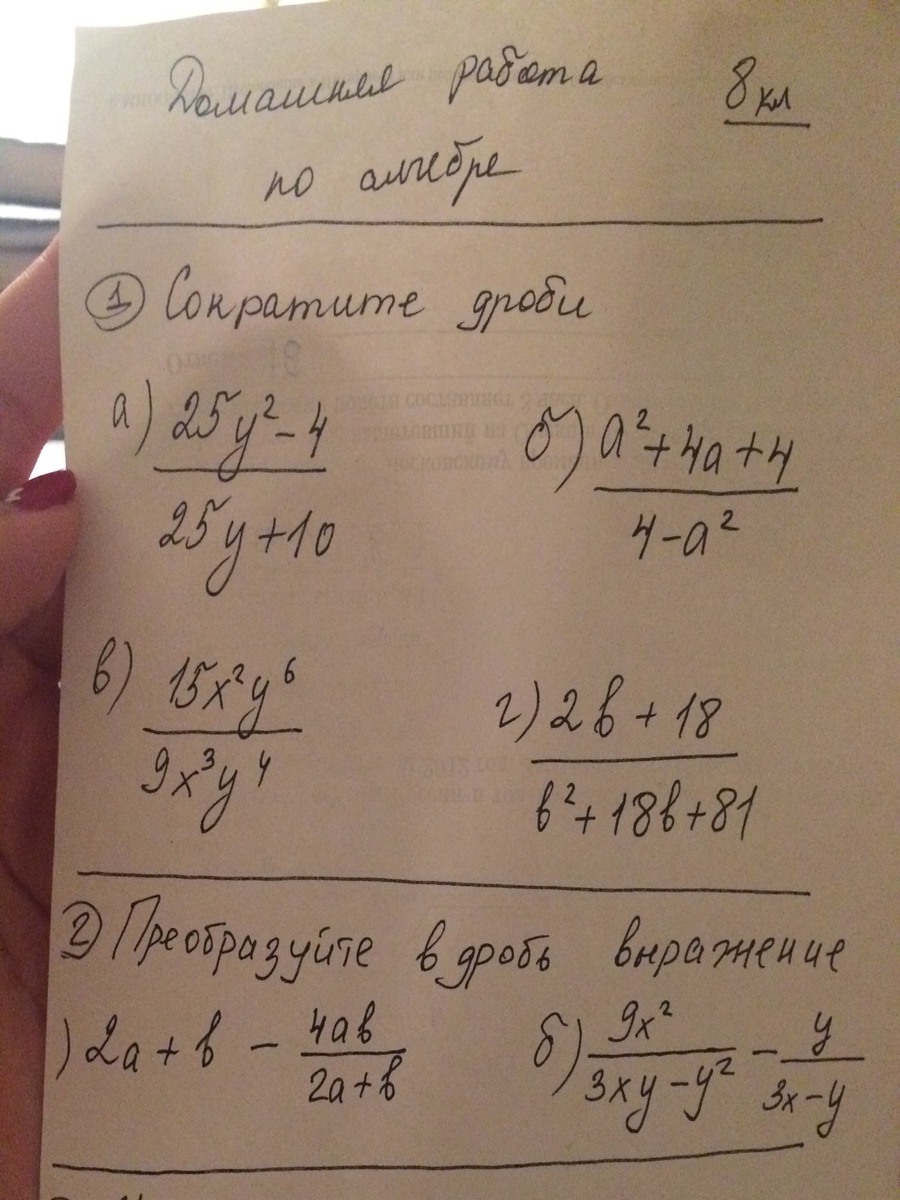 Домашняя работа 8 кл
по алгебре
① Сократите дроби
а) (25y² - 4)/(25y + 10) б) (a² + 4a + 4)/(4 - a²)
в) (15x²y⁶)/(9x³y⁴) г) (2b + 18)/(b² + 18b + 81)
② Преобразуйте в дробь выражение
) 2a + b - (4ab)/(2a + b) б) (9x²)/(3xy - y²) - y/(3x - y)